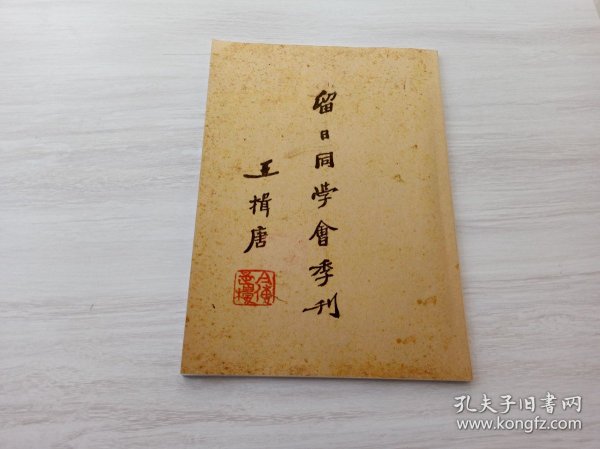 留日同学會季刊
王揖唐
孔夫子旧书网
www.kongfz.com